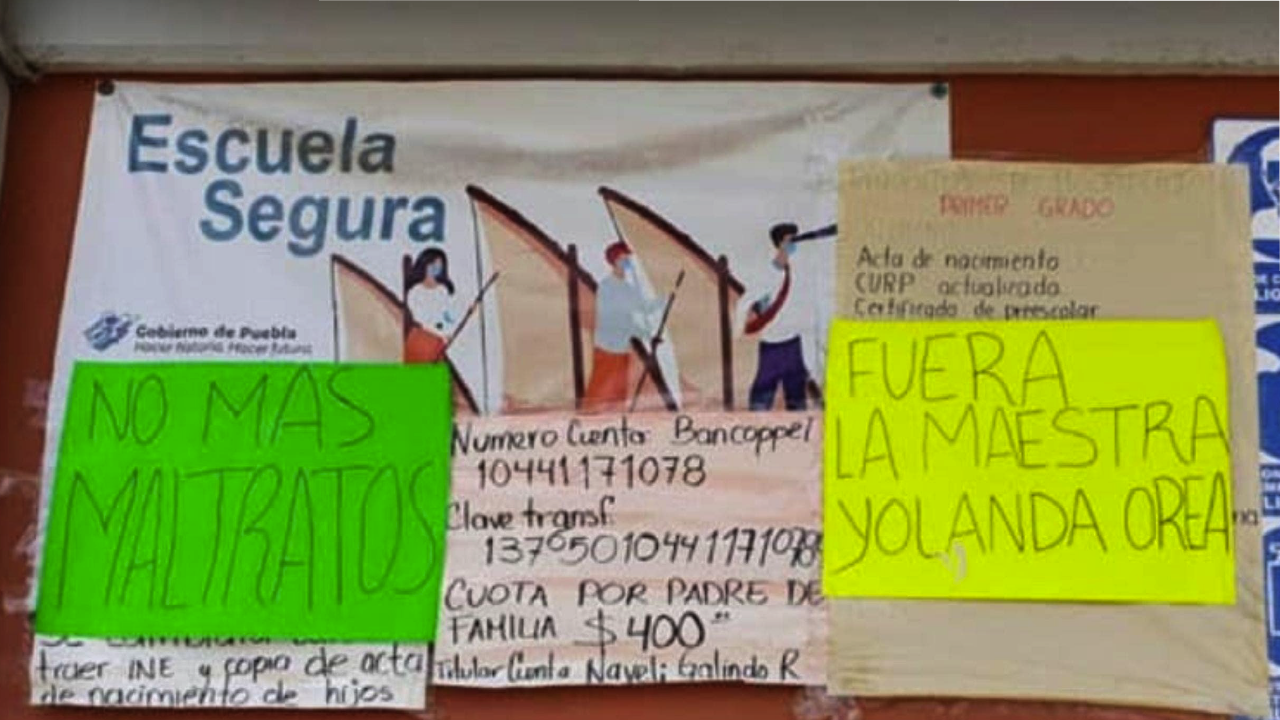 Escuela
Segura
Gobierno de Puebla
Hacer historia. Hacer futuro.
NO MAS
MALTRATOS
traer INE y copia de acta
de nacimiento de hijos
Numero Cuenta Bancoppel
10441171078
Clave transf.
CUOTA POR PADRE DE
FAMILIA $400
Titular Cuenta Nayeli Galindo R
PRIMER GRADO
Acta de nacimiento
CURP actualizado
Certificado de preescolar
FUERA
LA MAESTRA
YOLANDA OREA